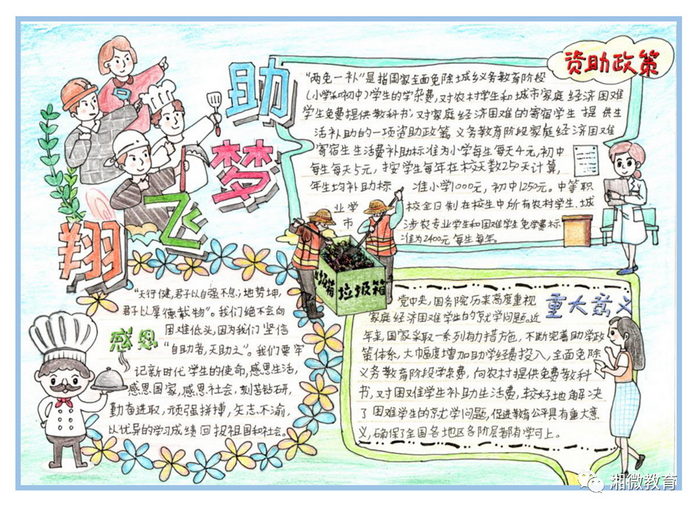 助梦飞翔
资助政策
"两免一补"是指国家全面免除城乡义务教育阶段
(小学和初中)学生的学杂费,对农村学生和城市家庭经济困难
学生免费提供教科书,对家庭经济困难的寄宿学生提供生
活补助的一项资助政策。义务教育阶段家庭经济困难
寄宿生生活费补助标准为小学每生每天4元,初中
每生每天5元,按学生每年在校天数250天计算,
年生均补助标准小学1000元,初中1250元。中等职
业学校全日制在校生中所有农村学生、城
市涉农专业学生和困难学生免学费标
准为2400元每生每年。
垃圾箱
垃圾箱
"天行健,君子以自强不息;地势坤,
君子以厚德载物"。我们绝不会向
困难低头,因为我们坚信
"自助者,天助之"。我们要牢
记新时代学生的使命,感恩生活,
感恩国家,感恩社会,刻苦钻研,
勤奋进取,顽强拼搏,矢志不渝,
以优异的学习成绩回报祖国和社会。
感恩
重大意义
党中央,国务院历来高度重视
家庭经济困难学生的就学问题。近
年来,国家采取一系列有力措施,不断完善助学政
策体系,大幅度增加助学经费投入,全面免除
义务教育阶段学杂费,向农村提供免费教科
书,对困难学生补助生活费,较好地解决
了困难学生的就学问题,促进教育公平具有重大意
义,确保了全国各地区各阶层都有学可上。
湘微教育